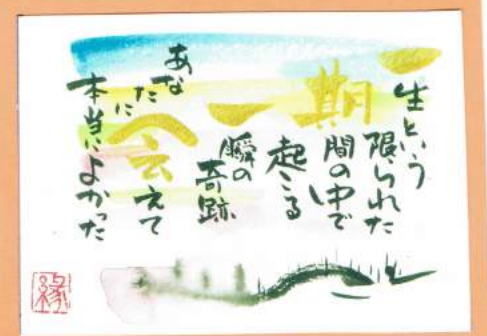 一生という
限られた
期間の中で
起こる
一瞬の
奇跡
あなたに
会えて
本当によかった
縁